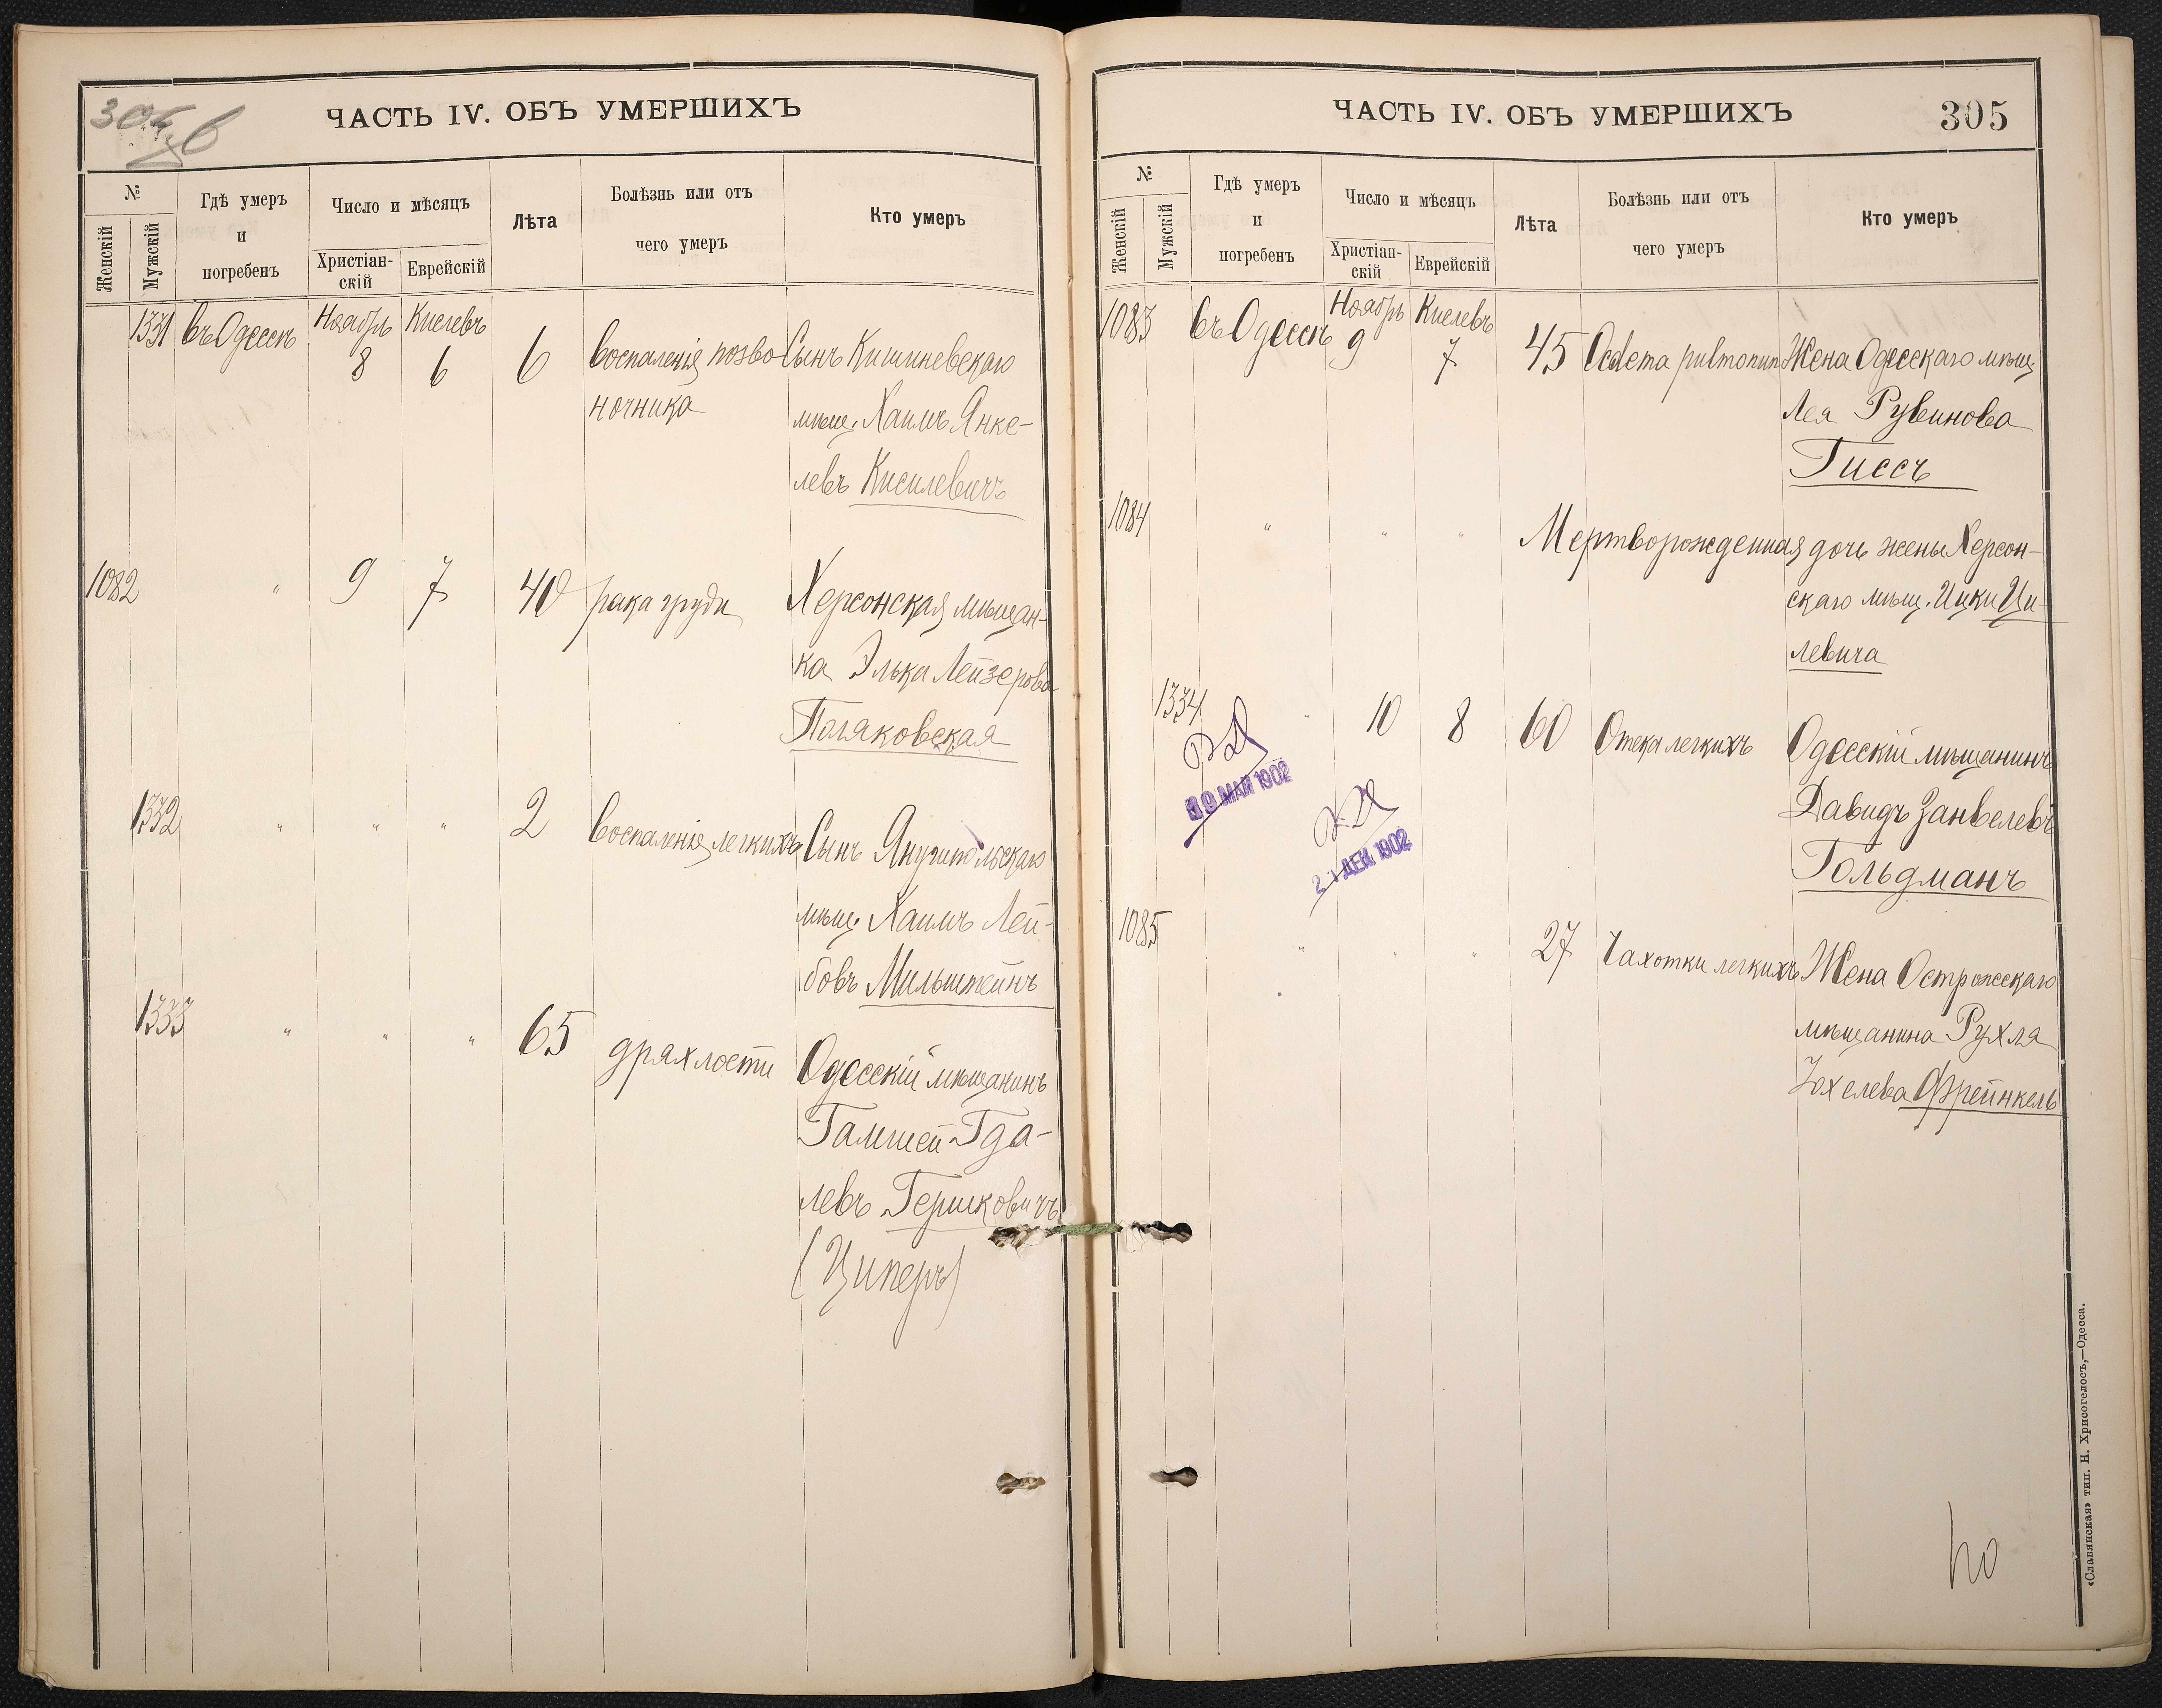 ЧАСТЬ IV. ОБЪ УМЕРШИХЪ
№
Женскій
Мужскій
Гдѣ умеръ
и
погребенъ
Число и мѣсяцъ
Христіан-
скій
Еврейскій
Лѣта
Болѣзнь или отъ
чего умеръ
Кто умеръ
1331 въ Одессѣ Ноябрь Кислевъ
8 6 6 воспаленія позво- Сынъ Кишиневскаго
ночника мѣщ. Хаимъ Янке-
левъ Кисилевичъ
1082 " 9 7 40 рака груди Херсонская мѣщан-
ка Элька Лейзерова
Поляковская
1332 " " " 2 воспаленія легкихъ Сынъ Янушпольскаго
мѣщ. Хаимъ Лей-
бовъ Мильштейнъ
1333 " " " 65 дряхлости Одесскій мѣщанинъ
Гамшей Гда-
левъ Гершковичъ
(Циперъ)
ЧАСТЬ IV. ОБЪ УМЕРШИХЪ
305
№
Женскій
Мужскій
Гдѣ умеръ
и
погребенъ
Число и мѣсяцъ
Христіан-
скій
Еврейскій
Лѣта
Болѣзнь или отъ
чего умеръ
Кто умеръ
1083 въ Одессѣ Ноябрь Кислевъ
9 7 45 Oedema pulmonum Жена Одесскаго мѣщ.
Лея Рувинова
Гиссъ
1084 " " " Мертворожденная дочь жены Херсон-
скаго мѣщ. Ицки Ци-
левича
1334 " 10 8 60 Отека легкихъ Одесскій мѣщанинъ
МАЙ 1902
Давидъ Занвелевъ
2 ДЕК 1902
Гольдманъ
1085 " " " 27 Чахотки легкихъ Жена Острожскаго
мѣщанина Рухля
Іохелева Фрейнкель
«Славянская» тип. Н. Хрисогелосъ,—Одесса.